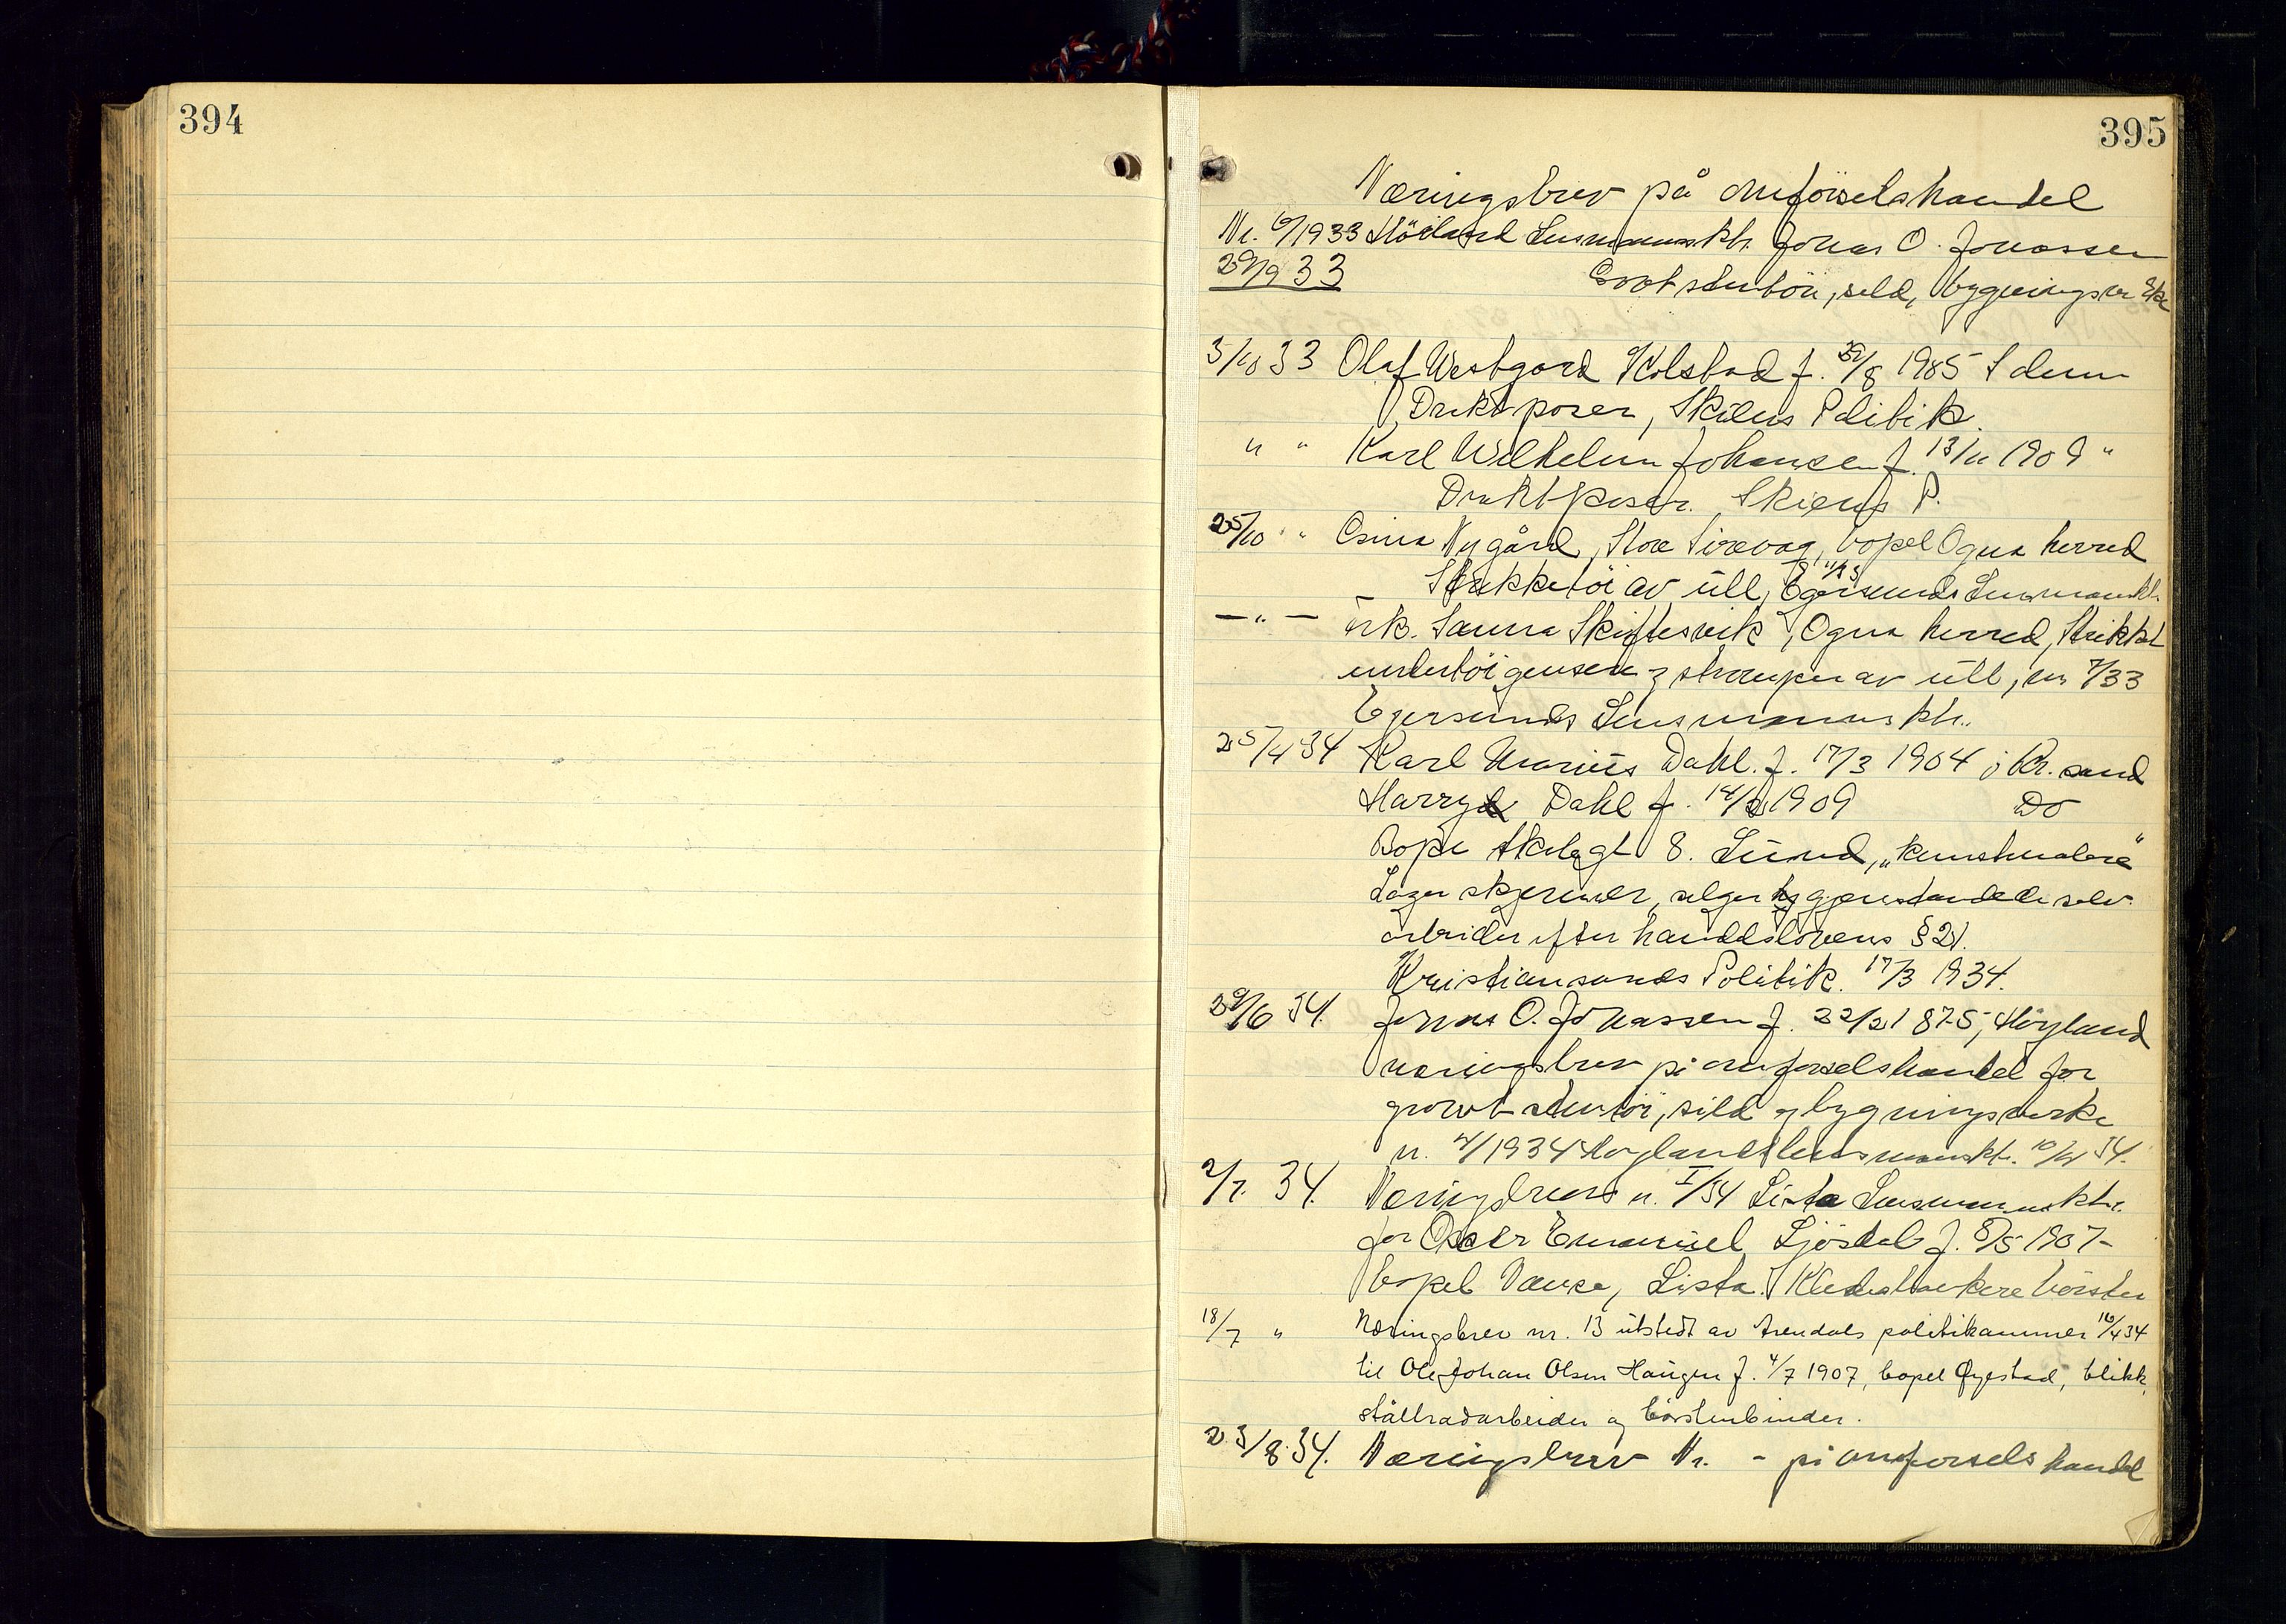 394
395
Næringsbrev på omførselshandel
Nr. 6/1933 Höiland Lensmannsktr. Jonas O. Jonassen
29/9 33 Grovt stentöi, sild, bygningsv
5/10 33 Olaf Westgard Kolstad f. 8 1985
Draktposer, Skiens Politik.
" " Karl Wilhelm Johansen f. 13/11 1909 "
Draktposer. Skiens P.
25/10 " Nygård, Store Sirevag, bopel Ogna herred
Strikketöi av ull, Egersunds Lensmanskt.
— " — frk. Sanna Skiftesvik, Ogna herred, Strikket
undertöi gensere & strömper av ull, nr 7/33
Egersunds Lensmannsktr.
25/4 34 Karl Marius Dahl. f. 17/3 1904 i Kr. sand
Harry Dahl f. 14/2 1909 Do
Bopel gt 8. Lund, "kunstmalere"
Lager skjermer, selger gjenstandede selv.
arbeider efter handelslovens § 21.
Kristiansands Politik. 17/3 1934.
29/6 34. Jonas O. Jonassen f. 22/2 1875, Höyland
næringsbrev på omførselshandel for
grovt stentöi, sild og bygningsverke
n. 4/1934 Høylands lensmanskt. 34.
2/7. 34. Næringsbrev n. I/34 Lista Lensmannsktr.
for Oscar Emanuel Sjödal f. 8/5 1907-
bopel Vanse, Lista. Klædesbankere börster
18/7 " Næringsbrev nr. 13 utstedt av Arendals politikammer 16/4 34
til Ole Johan Olsen Haugen f. 4/7 1907, bopel Øyestad, blikk,
ståltradarbeider og börstenbinder.
23/8. 34. Næringsbrev Nr. - på omførselshandel